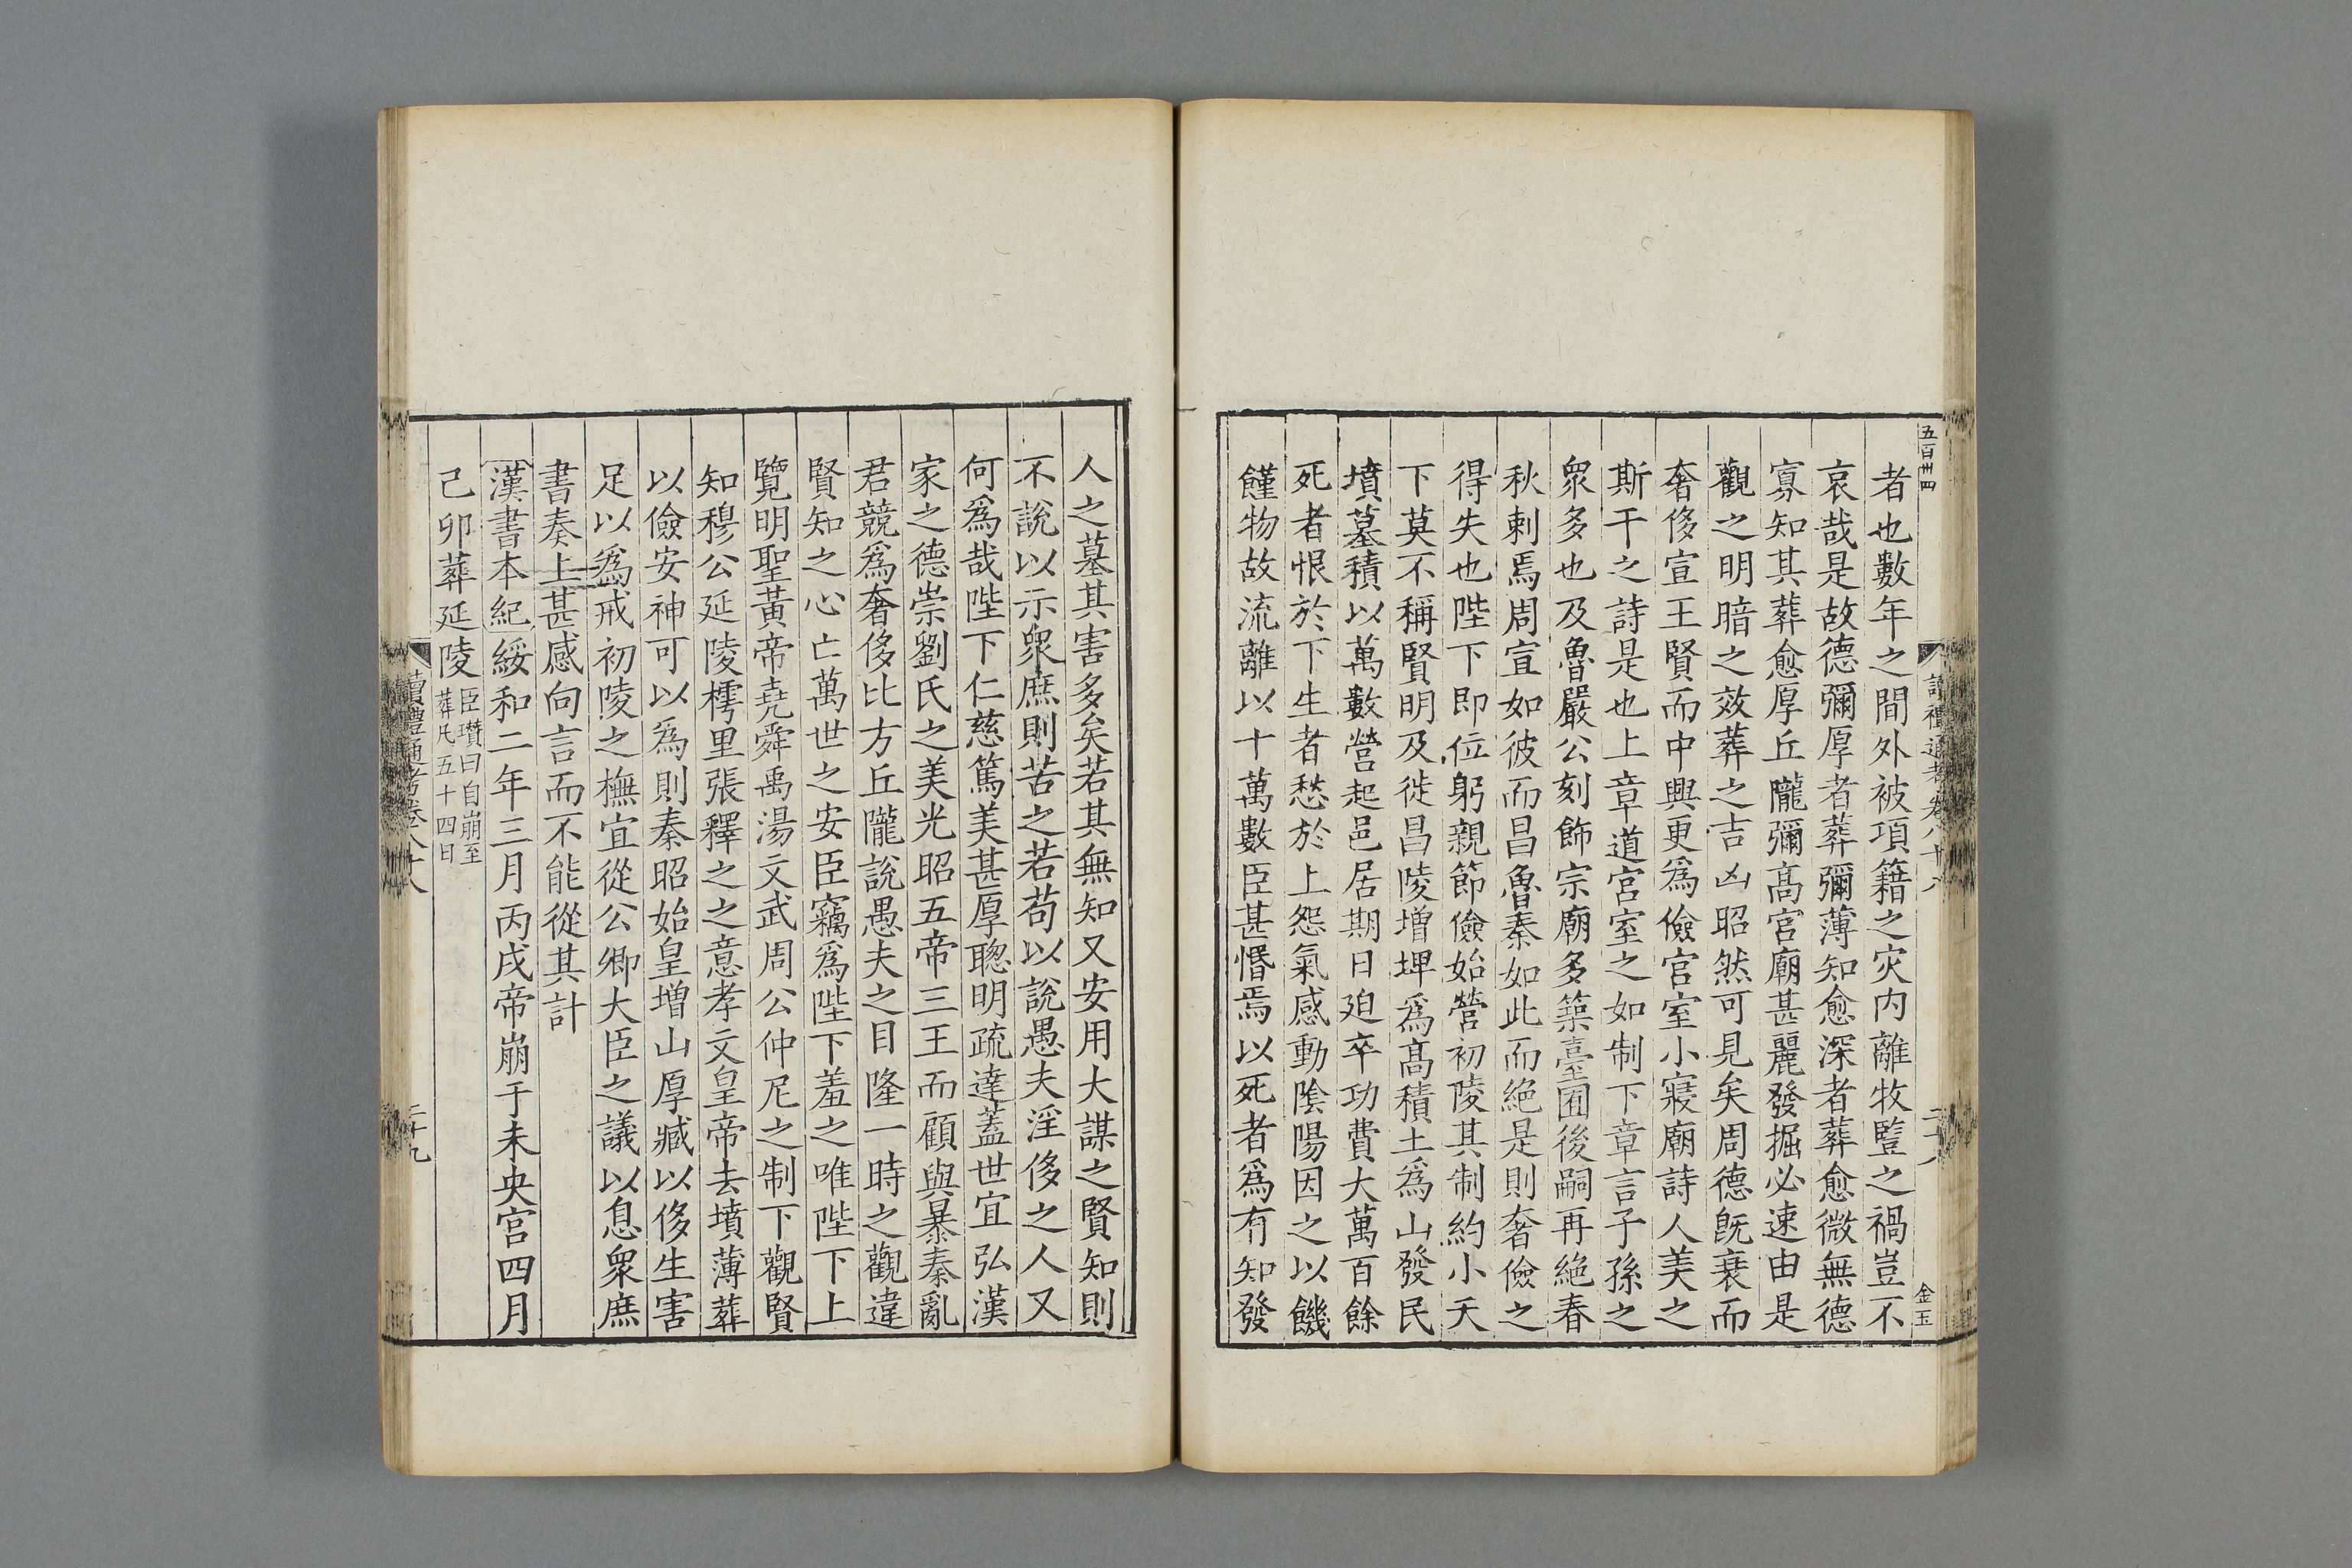 五百卅四
讀禮通考卷八十八
二十八
金玉
者也數年之間外被項籍之災内離牧豎之禍豈不
哀哉是故德彌厚者葬彌薄知愈深者葬愈微無德
寡知其葬愈厚丘隴彌髙宮廟甚麗發掘必速由是
觀之明暗之效葬之吉凶昭然可見矣周德旣衰而
奢侈宣王賢而中興更爲儉宮室小寢廟詩人美之
斯干之詩是也上章道宮室之如制下章言子孫之
衆多也及魯嚴公刻飾宗廟多築臺囿後嗣再絶春
秋刺焉周宣如彼而昌魯秦如此而絶是則奢儉之
得失也陛下即位躬親節儉始營初陵其制約小天
下莫不稱賢明及徙昌陵增埤爲髙積土爲山發民
墳墓積以萬數營起邑居期日迫卒功費大萬百餘
死者恨於下生者愁於上怨氣感動陰陽因之以饑
饉物故流離以十萬數臣甚惛焉以死者爲有知發
人之墓其害多矣若其無知又安用大謀之賢知則
不說以示衆庶則苦之若苟以說愚夫淫侈之人又
何爲哉陛下仁慈篤美甚厚聰明疏達蓋世宜弘漢
家之德崇劉氏之美光昭五帝三王而顧與暴秦亂
君競爲奢侈比方丘隴說愚夫之目隆一時之觀違
賢知之心亡萬世之安臣竊爲陛下羞之唯陛下上
覽明聖黃帝堯舜禹湯文武周公仲尼之制下觀賢
知穆公延陵樗里張釋之之意孝文皇帝去墳薄葬
以儉安神可以爲則秦昭始皇增山厚臧以侈生害
足以爲戒初陵之橅宜從公卿大臣之議以息衆庶
書奏上甚感向言而不能從其計
漢書本紀綏和二年三月丙戌帝崩于未央宮四月
己卯葬延陵臣瓚曰自崩至
葬凡五十四日
讀禮通考卷八十八
二十九